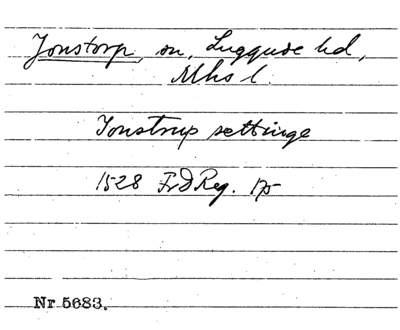 Jonstorp, sn, Luggude hd,
Mhs l.
Jonstrup settinge
1528 FrdReg. 175
Nr 5683.